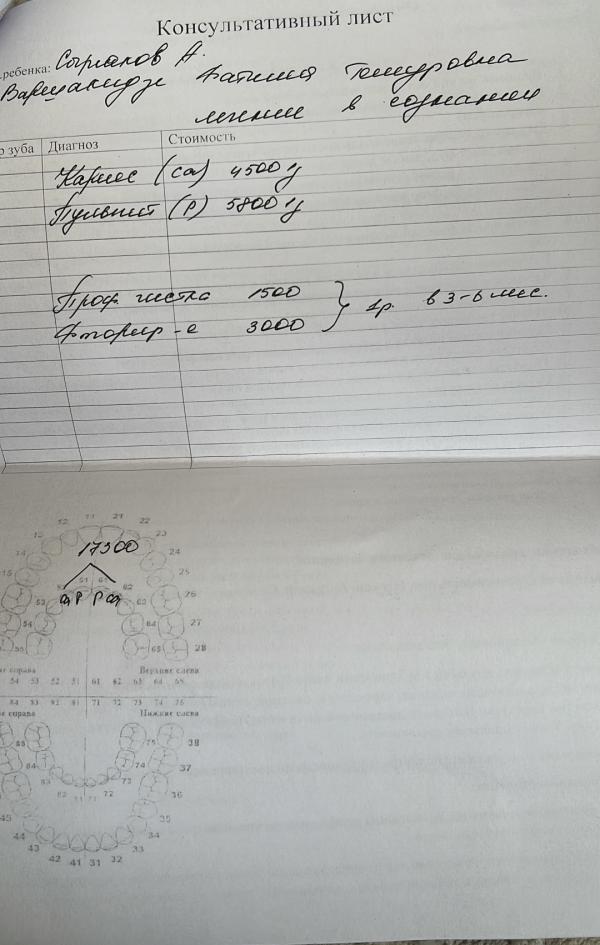 Консультативный лист
ребенка: Сырланов А.
Варшакидзе Фатимия Темуровна
лечение в сознании
р зуба Диагноз Стоимость
Кариес (Ca) 4500
Пульпит (P) 5800
Проф. чистка 1500
1р. в 3-6 мес.
Фторир-е 3000
12 11 21 22
23
24
15 25
17300
51 61
62
Ca P P Ca
53 63 26
54 64 27
55 65 28
справа Верхние слева
54 53 52 51 61 62 63 64 65
84 83 82 81 71 72 73 74 75
справа Нижние слева
85 75 38
84 74 37
83 73
82 81 71 72 36
45 35
44 34
43 33
42 41 31 32